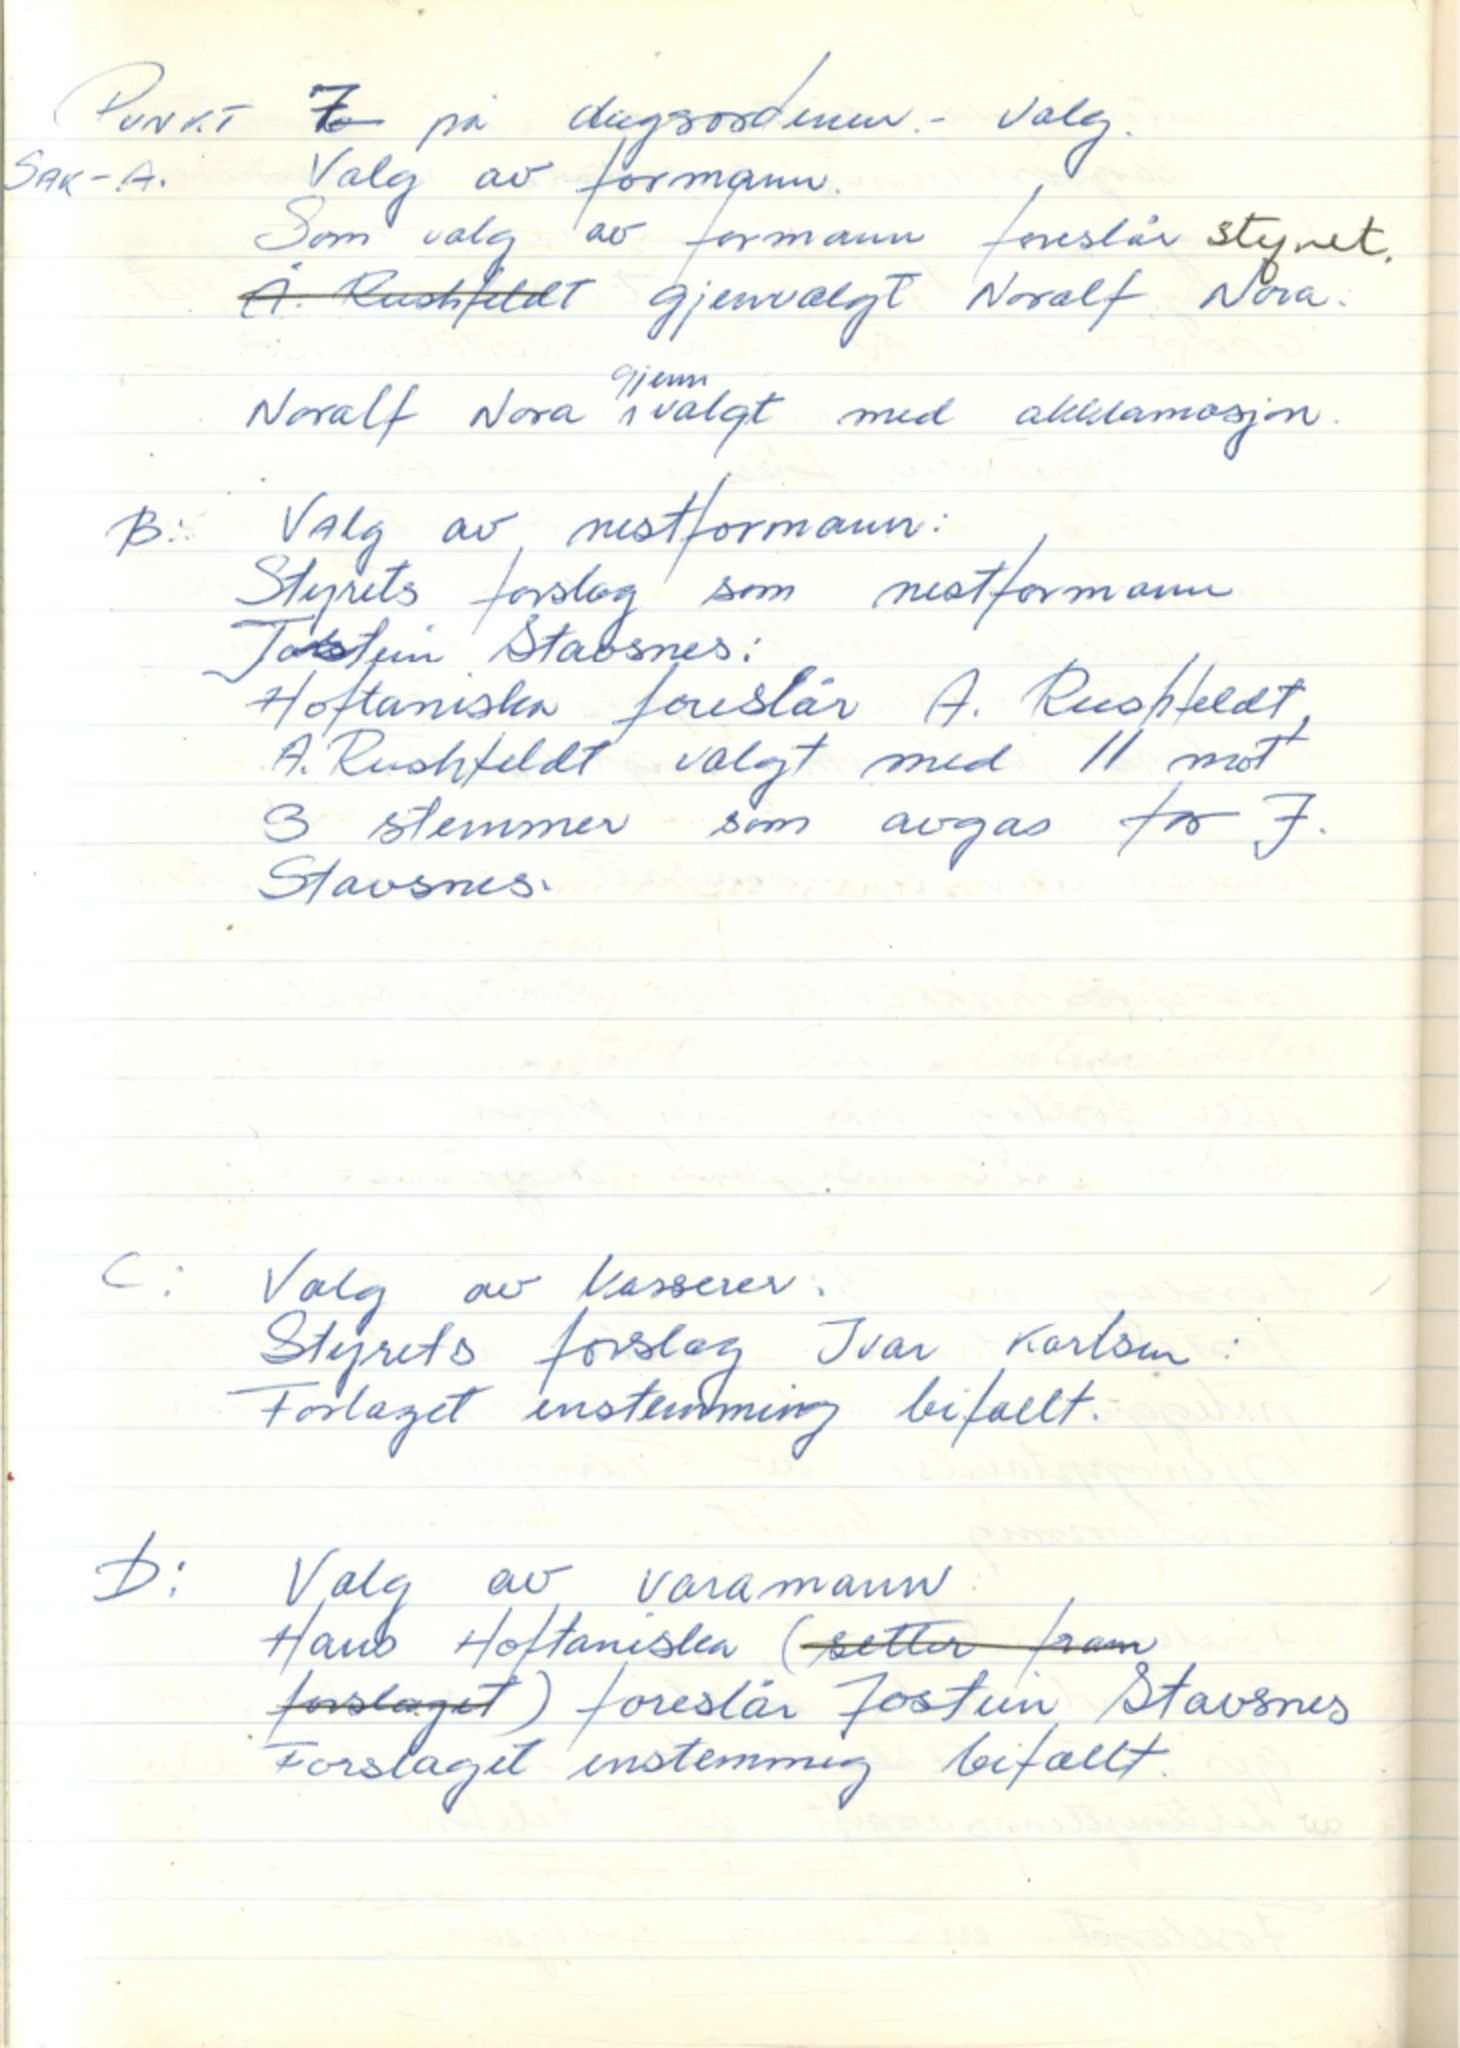 PUNKT 7 på dagsordenen. - Valg.
SAK - A. Valg av formann.
Som valg av formann foreslår styret.
A. Rushfeldt gjenvalgt Noralf Nora.
gjenn
Noralf Nora valgt med akklamasjon.
B: Valg av nestformann:
Styrets forslag som nestformann
Jostein Stavsnes:
Hoftaniska foreslår A. Rushfeldt,
A. Rushfeldt valgt med 11 mot
3 stemmer som avgas for J.
Stavsnes.
C: Valg av kasserer.
Styrets forslag Ivar Karlsen:
Forlaget enstemming bifallt.
D: Valg av varamann.
Hans Hoftaniska (setter fram
forslaget) foreslår Jostein Stavsnes
Forslaget enstemmig bifallt.